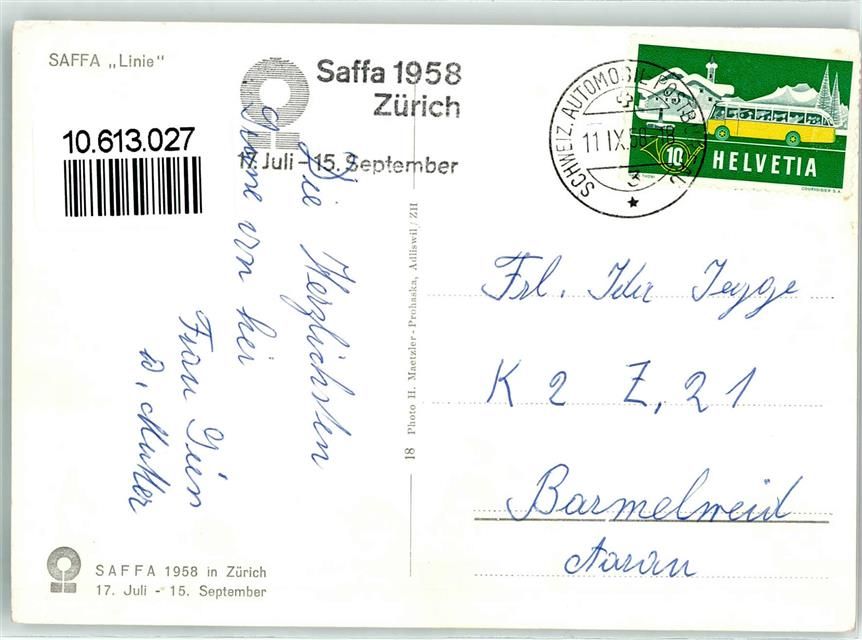 SAFFA „Linie"
10.613.027
Saffa 1958
Zürich
17. Juli – 15. September
SCHWEIZ. AUTOMOBILPOSTBUREAU
11 IX.58-18
3
10
HELVETIA
COURVOISIER S.A.
Die Herzlichsten
von hei
Frau
u. Mutter
18 Photo H. Maetzler-Prohaska, Adliswil/ZH
Frl. Ida Jegge
K 2 Z, 21
Barmelweid
Aarau
SAFFA 1958 in Zürich
17. Juli - 15. September